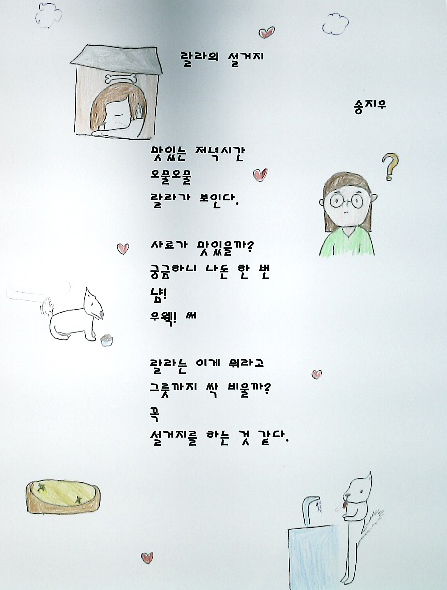 랄라의 설거지
송지우
맛있는 저녁시간
오물오물
랄라가 보인다.
사료가 맛있을까?
궁금하니 나도 한 번
냠!
우웩! 써
랄라는 이게 뭐라고
그릇까지 싹 비울까?
꼭
설거지를 하는 것 같다.